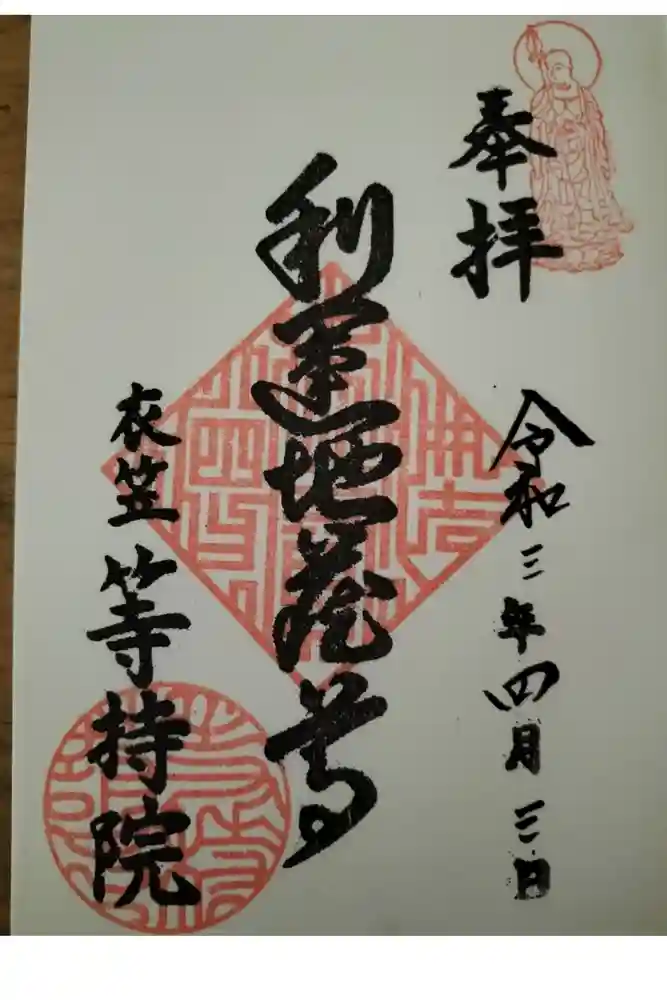 奉拝
令和三年四月三日
利運地蔵尊
衣笠
等持院